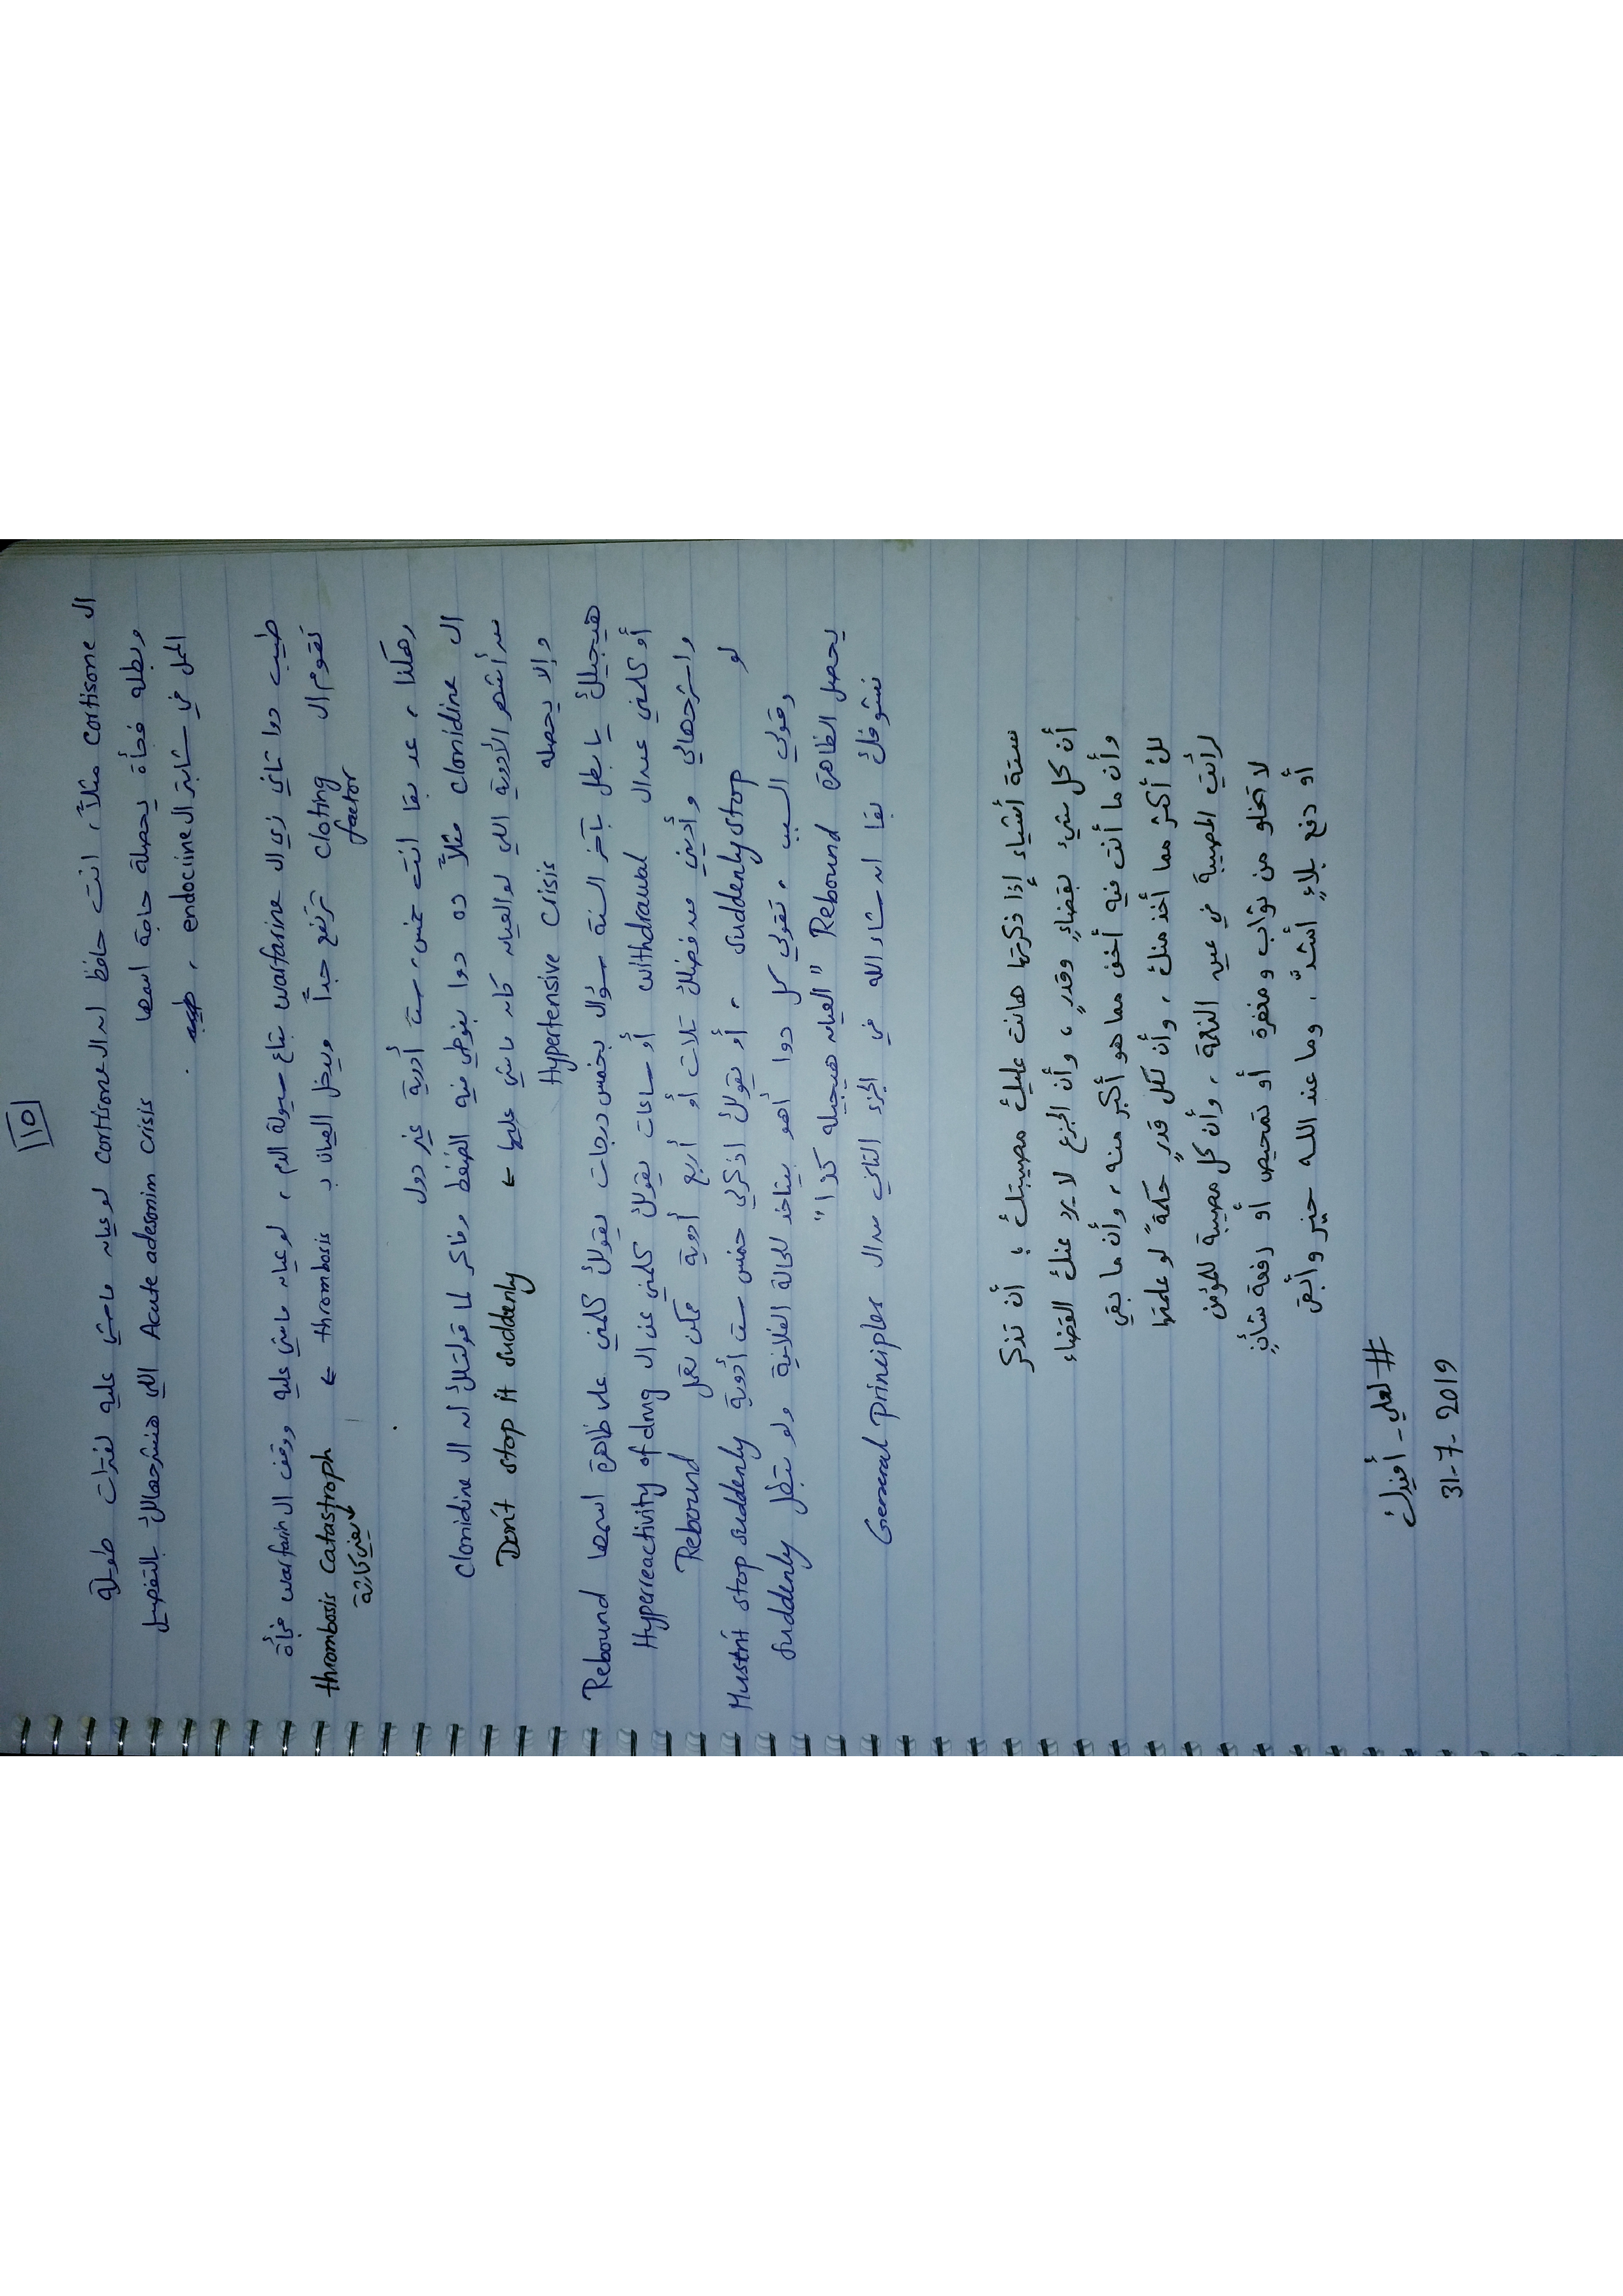 ١٥
ال cortisone مثلاً، انت حافظ ان ال cortisone لو عيان ماشي عليه لفترات طويلة
وبطله فجأة يحصله حاجة اسمها Acute adesonim crisis اللي هنشرحهالك بالتفصيل
الممل في شابتر ال endocrine ،
طيب دوا تاني زي ال warfarine بتاع سيولة الدم ، لو عيان ماشي عليه ووقف ال warfarin فجأة
تقوم ال cloting factor ترتفع جداً ويدخل العيان بـ thrombosis ← thrombosis catastroph
يعني كارثة
وهكذا ، عد بقا انت خمس، ست أدوية غير دول
ال clonidine مثلاً ده دوا بنوطي فيه الضغط وفاكر لما قولتلك أن ال clonidine
من أشهر الأدوية اللي لو العيان كان ماشي عليها ← Don't stop it suddenly
وإلا يحصله Hypertensive crisis
هيجيلك يا بطل بآخر السنة سؤال بخمس درجات يقولك كلمني على ظاهرة اسمها Rebound
أو كلمني عن ال withdrawal أو ساعات يقولك كلمني عن ال Hyperreactivity of drug
واشرحهالي وأديني من فضلك تلات أو أربع أدوية ممكن تعمل Rebound
لو suddenly stop ، أو يقولك اذكرلي خمس ست أدوية Mustn't stop suddenly
وقولي السبب ، تقولي كل دوا أهو بيتاخد للحالة الفلانية ولو بتبطل suddenly
يحصل الظاهرة Rebound "العيان هيجيله كذا"
نشوفك بقا ان شاء الله في الجزء التاني من ال General principles
ستة أشياء إذا ذكرتها هانت عليك مصيبتك ؛ أن تذكر
أن كل شيءٍ بقضاءٍ وقدرٍ ، وأن الجزع لا يرد عنك القضاء
وأن ما أنت فيه أخف مما هو أكبر منه ، وأن ما بقي
لك أكثر مما أخذ منك ، وأن لكل قدرٍ حكمةً لو علمتها
لرأيت المصيبة هي عين النعمة ، وأن كل مصيبة للمؤمن
لا تخلو من ثواب ومغفرة أو تمحيص أو رفعة شأنٍ
أو دفع بلاءٍ أشدّ ، وما عند الله خير وأبقى
#لعلي-أفيدك
31-7-2019